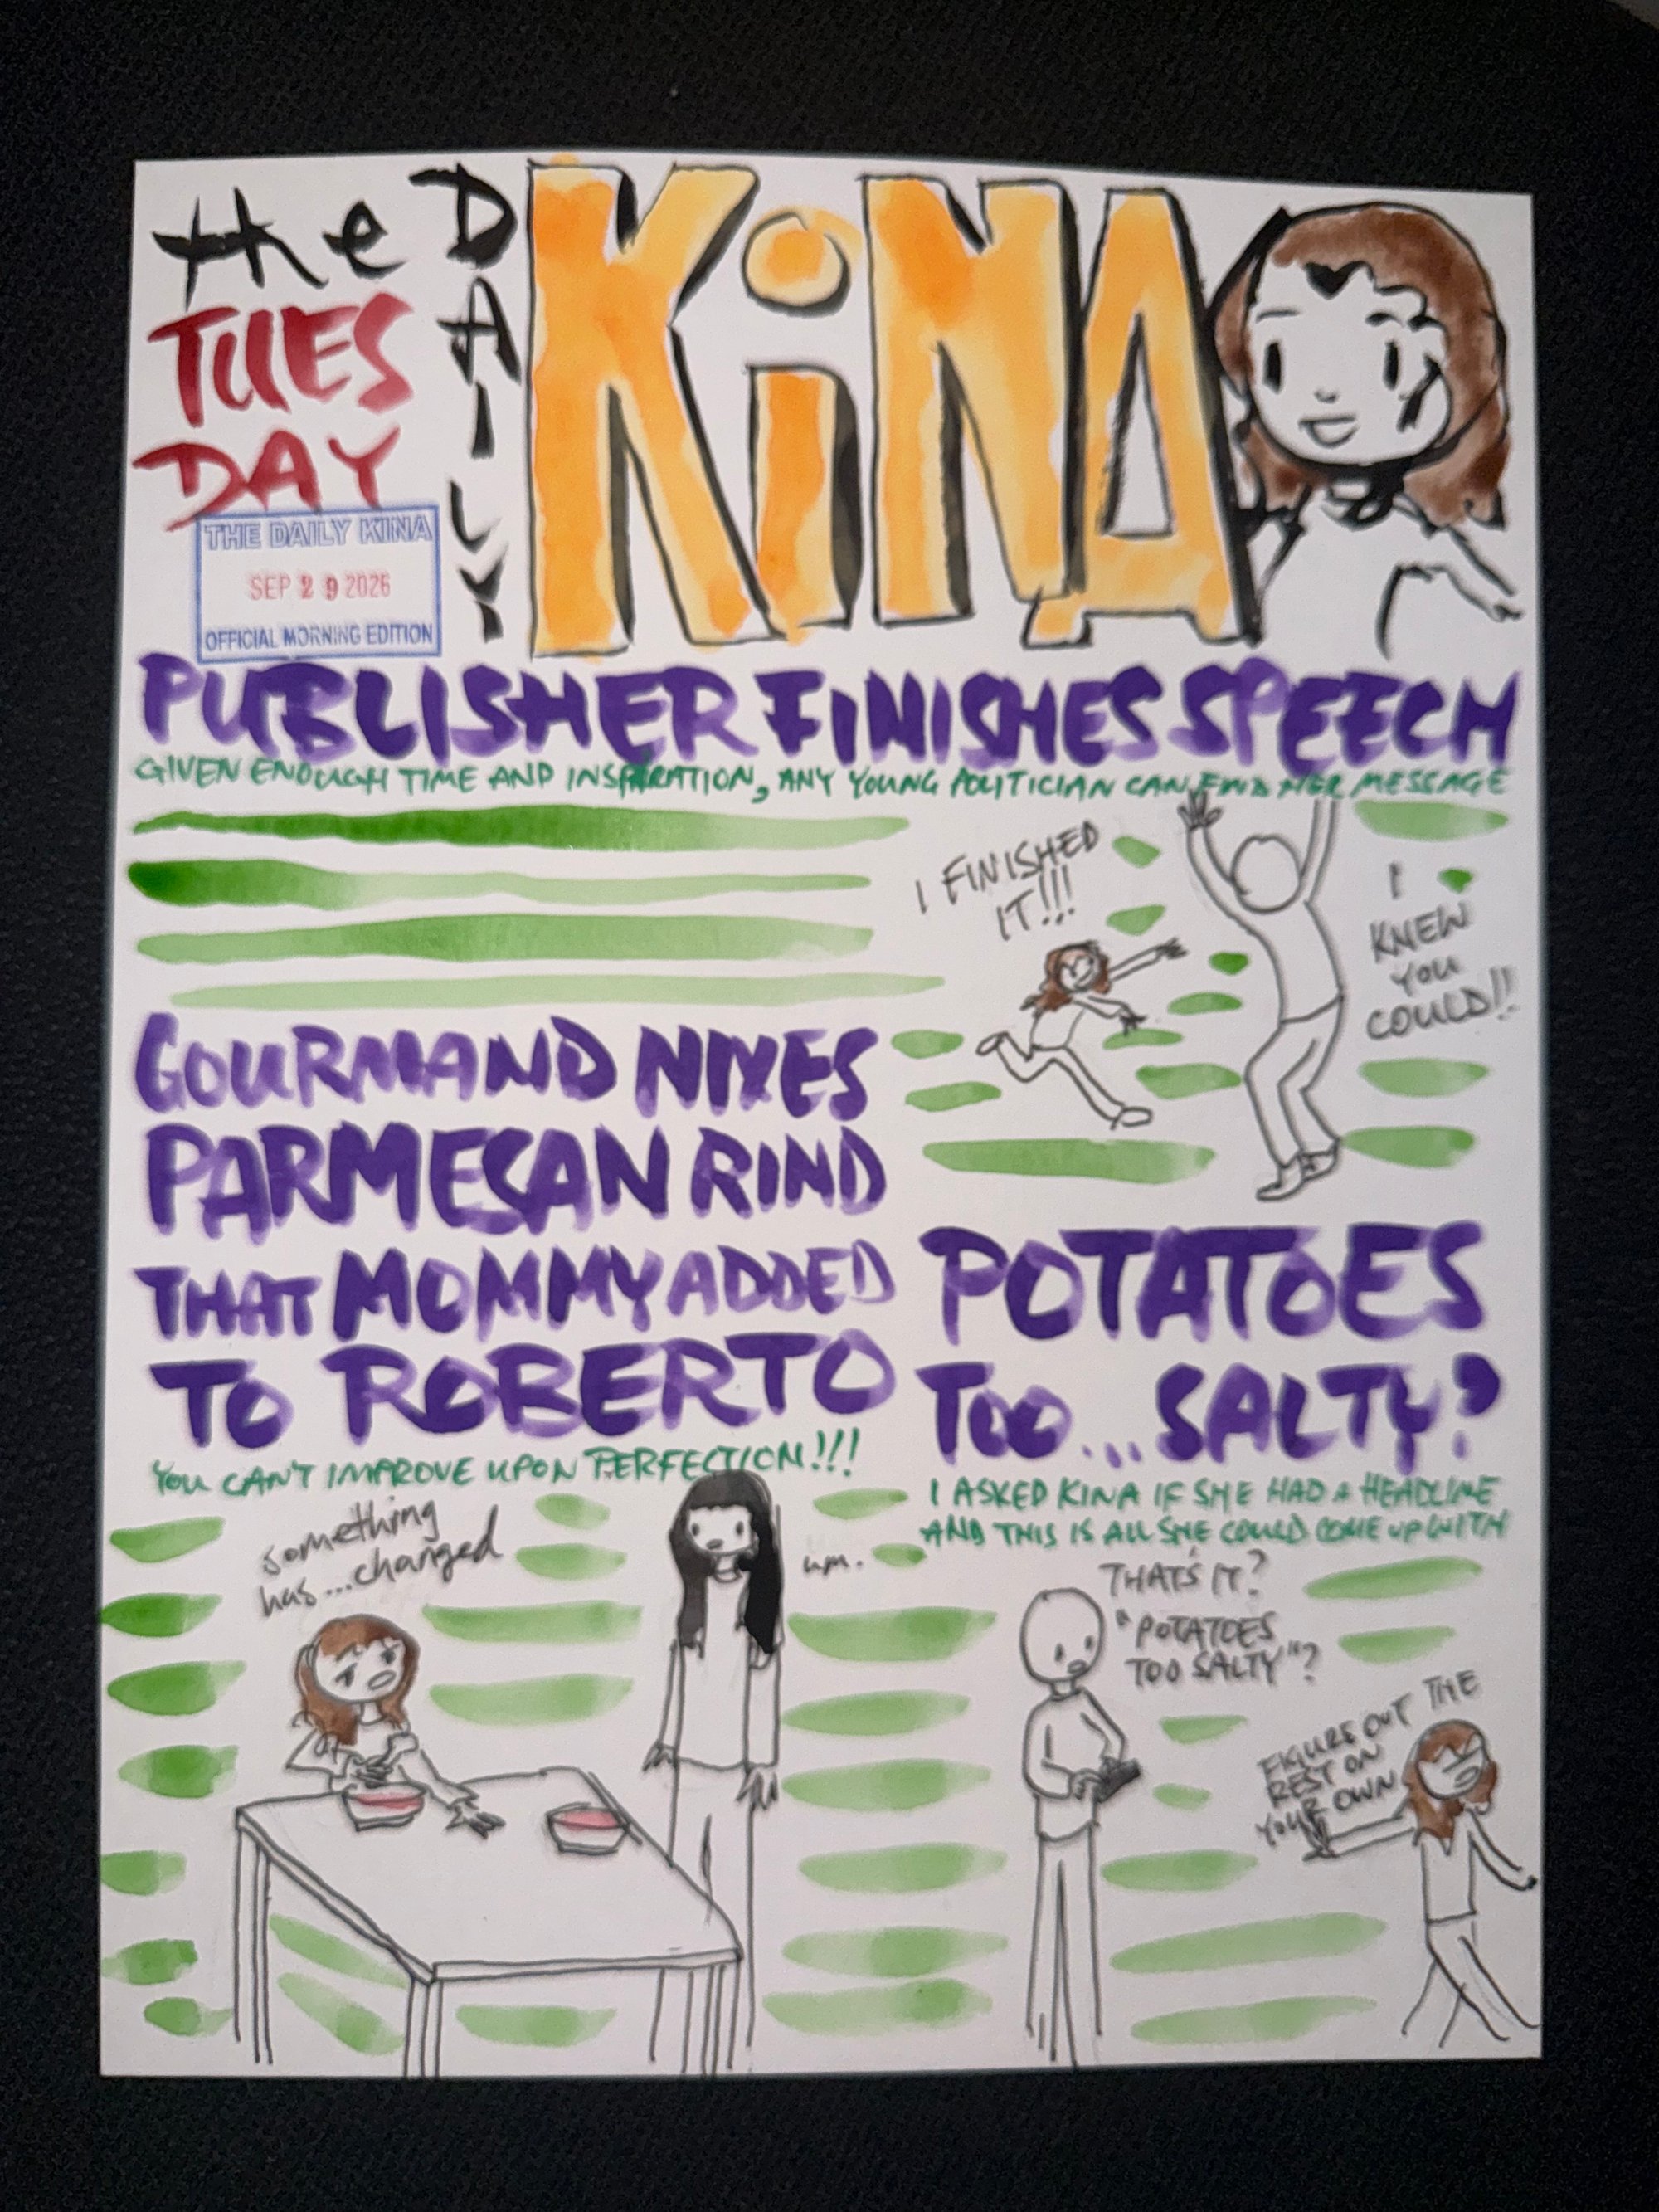 the
TUES
DAY
DAILY
KiNA
THE DAILY KINA
SEP 29 2026
OFFICIAL MORNING EDITION
PUBLISHER FINISHES SPEECH
GIVEN ENOUGH TIME AND INSPIRATION, ANY YOUNG POLITICIAN CAN FIND HER MESSAGE
I FINISHED
IT!!!
I
KNEW
YOU
COULD!!
GOURMAND NIXES
PARMESAN RIND
THAT MOMMY ADDED
TO ROBERTO
YOU CAN'T IMPROVE UPON PERFECTION!!!
something
has...changed
um.
POTATOES
TOO...SALTY?
I ASKED KINA IF SHE HAD A HEADLINE
AND THIS IS ALL SHE COULD COME UP WITH
THAT'S IT?
"POTATOES
TOO SALTY"?
FIGURE OUT THE
REST ON
YOUR OWN